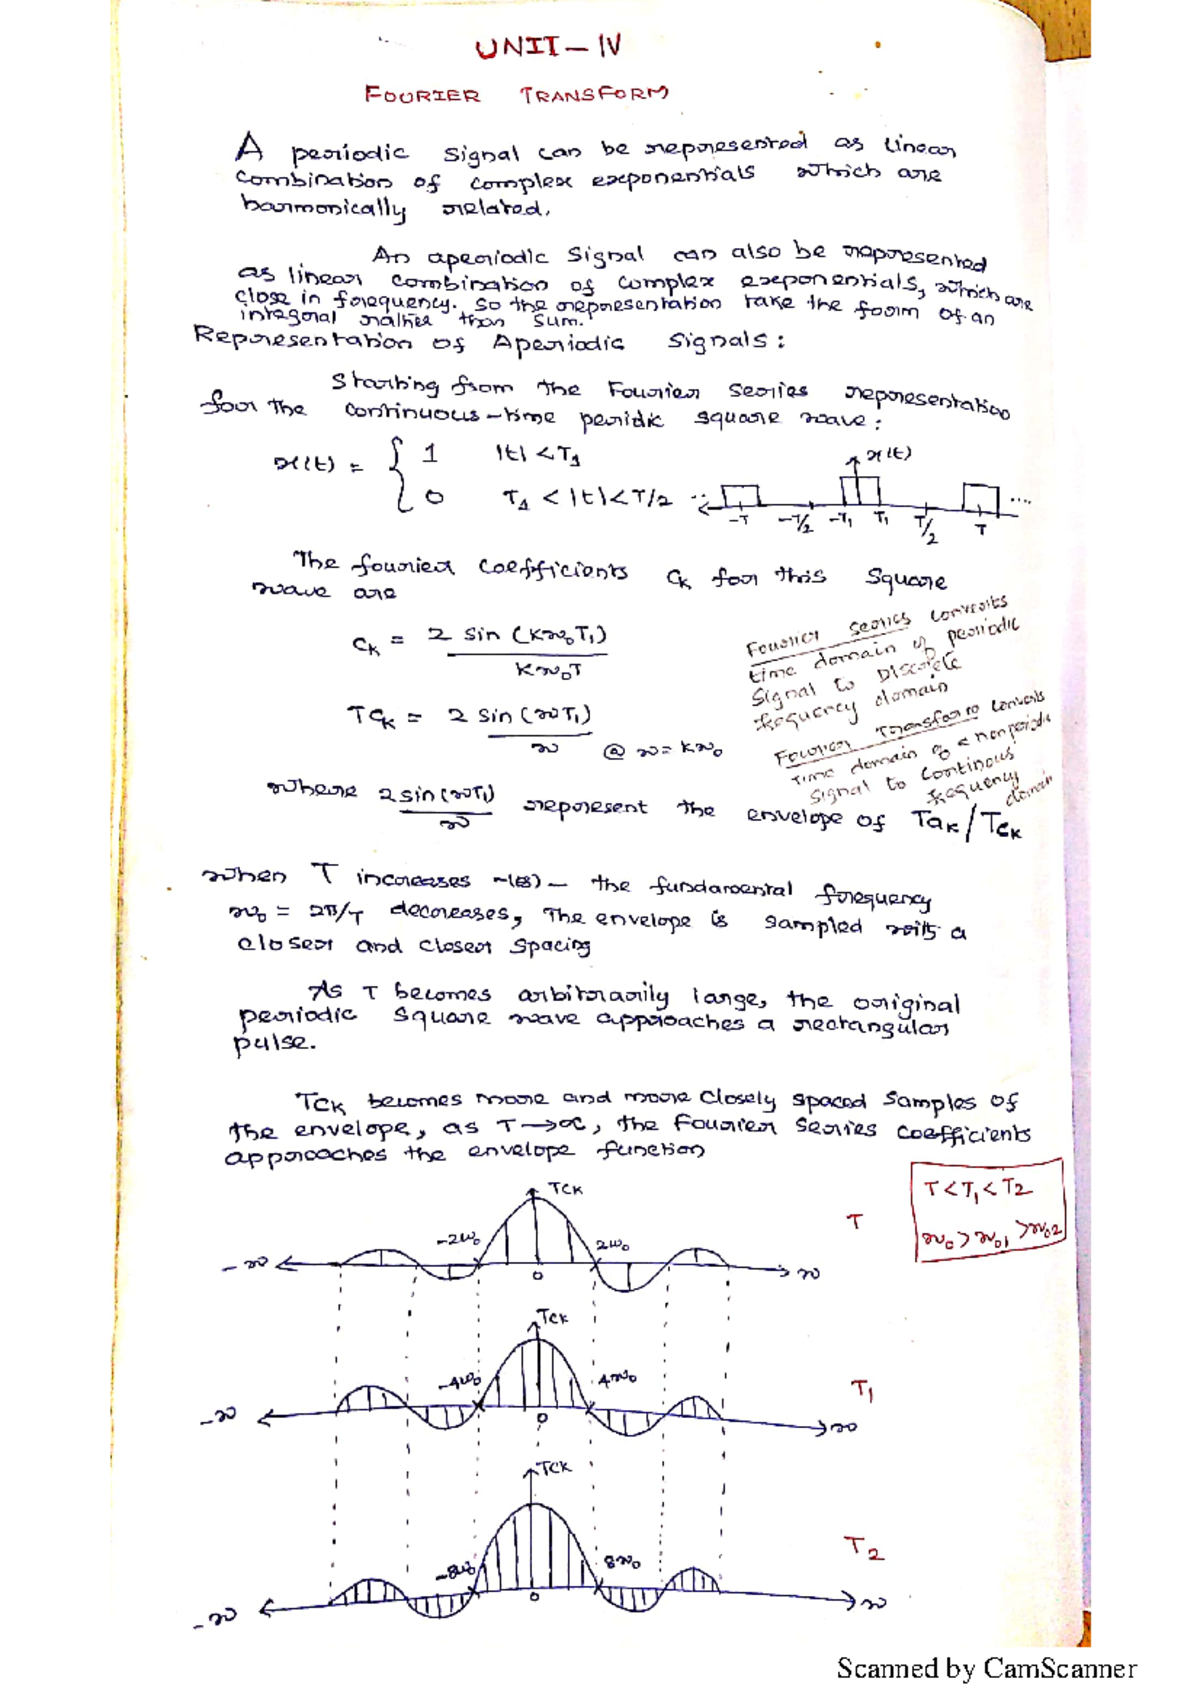 UNIT-IV
FOURIER TRANSFORM
A periodic signal can be represented as linear
combination of complex exponentials which are
harmonically related.
An aperiodic signal can also be represented
as linear combination of complex exponentials, which are
close in frequency. So the representation take the form of an
integral rather than sum.
Representation of Aperiodic signals:
Starting from the Fourier series representation
for the continuous-time peridic square wave:
x(t) = { 1 |t| < T1
0 T1 < |t| < T/2
x(t)
-T -T/2 -T1 T1 T/2 T
The fourier coefficients Ck for this square
wave are
Ck = 2 sin (kω0T1) / kω0T
TCk = 2 sin (ωT1) / ω @ ω = kω0
Fourier series converts
time domain of periodic
signal to Discrete
frequency domain
Fourier Transform converts
Time domain of a nonperiodic
signal to continous
frequency domain
where 2 sin (ωT1) / ω represent the envelope of Tak / TCk
when T increases the fundamental frequency
ω0 = 2π/T decreases, The envelope is sampled with a
closer and closer spacing
As T becomes arbitrarily large, the original
periodic square wave approaches a rectangular
pulse.
TCk becomes more and more closely spaced samples of
the envelope, as T→∝, the Fourier series coefficients
approaches the envelope function
TCk
-2ω0 2ω0
-ω 0 ω
T
T < T1 < T2
ω0 > ω01 > ω02
TCk
-4ω0 4ω0
-ω 0 ω
T1
TCk
-8ω0 8ω0
-ω 0 ω
T2
Scanned by CamScanner